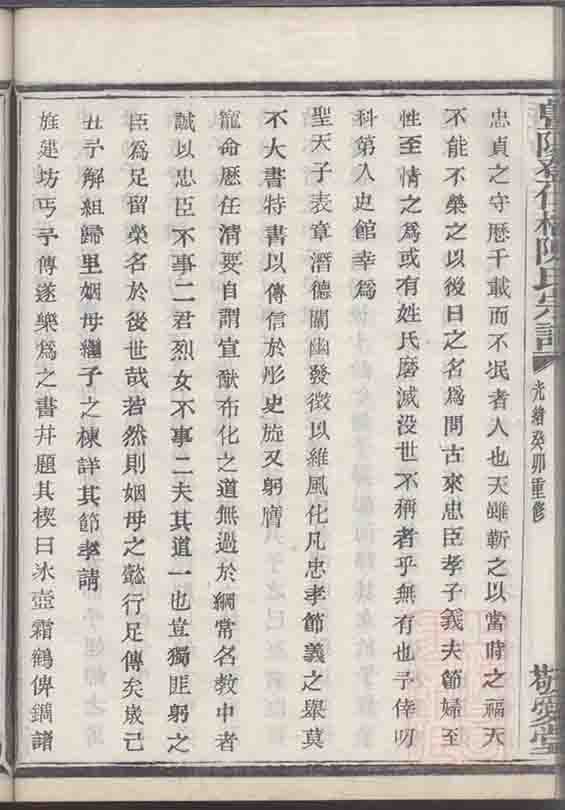 忠貞之守歷千載而不泯者人也天雖靳之以當時之福天
不能不榮之以後日之名爲問古來忠臣孝子義夫節婦至
性至情之爲或有姓氏磨滅没世不稱者乎無有也予倖叨
科第入史館幸爲
聖天子表章潛德闡幽發徵以維風化凡忠孝節義之舉莫
不大書特書以傳信於彤史旋又躬膺
寵命歷任清要自謂宣猷布化之道無過於綱常名教中者
誠以忠臣不事二君烈女不事二夫其道一也豈獨匪躬之
臣爲足留榮名於後世哉若然則姻母之懿行足傳矣歲己
丑予解組歸里姻母繼子之棟詳其節孝請
旌建坊丐予傳遂樂爲之書并題其楔曰冰壺霜鶴俾鐫諸
陳氏宗譜
光緒癸卯重修
敬愛堂